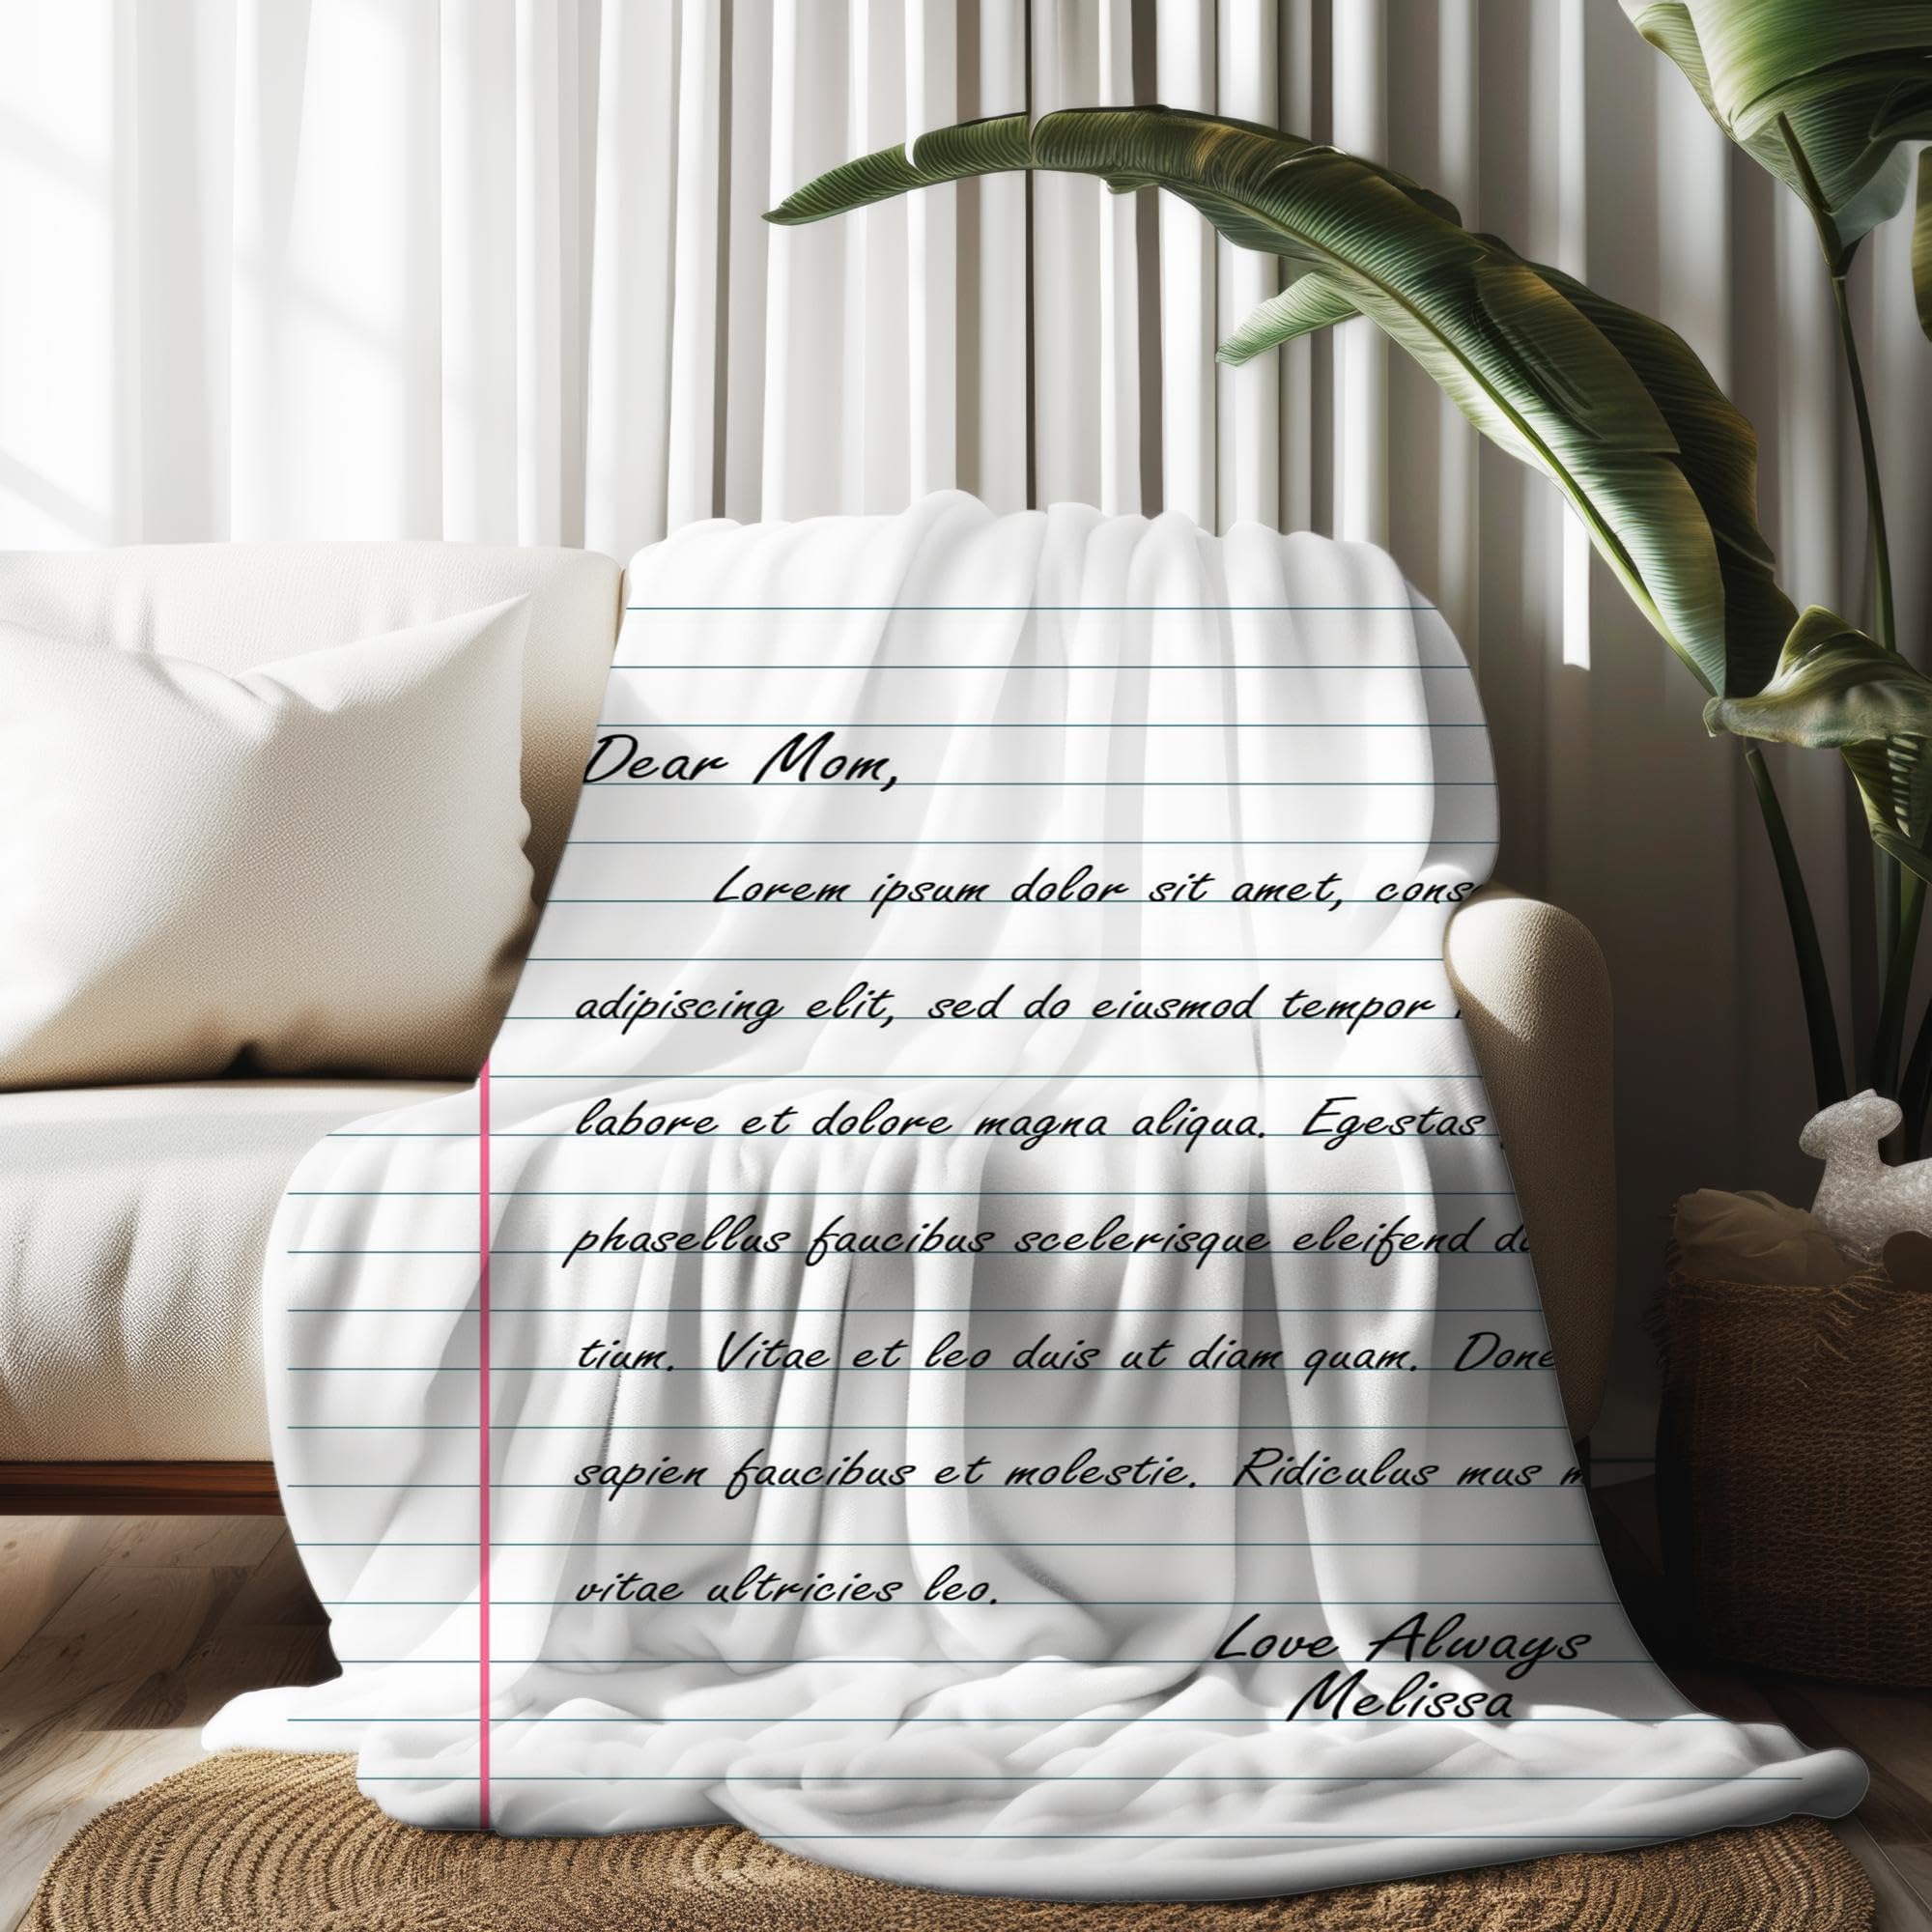 Dear Mom,
Lorem ipsum dolor sit amet,
adipiscing elit, sed do eiusmod tempor
labore et dolore magna aliqua. Egestas
phasellus faucibus scelerisque eleifend
tium. Vitae et leo duis ut diam quam.
sapien faucibus et molestie. Ridiculus mus
vitae ultricies leo.
Love Always
Melissa